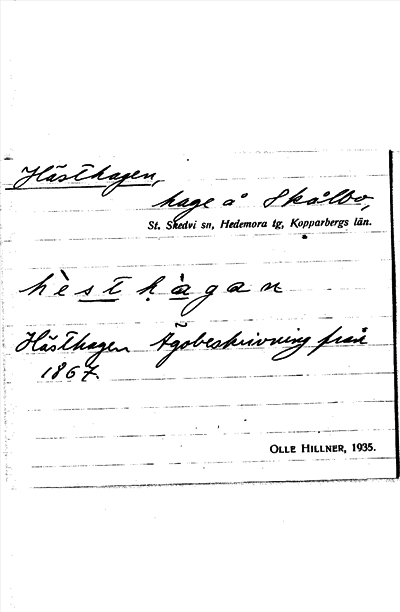 Hästhagen,
hage å Skålbo,
St. Skedvi sn, Hedemora tg, Kopparbergs län.
hèsthàgan
Hästhagen Ägobeskrivning från
1867.
OLLE HILLNER, 1935.